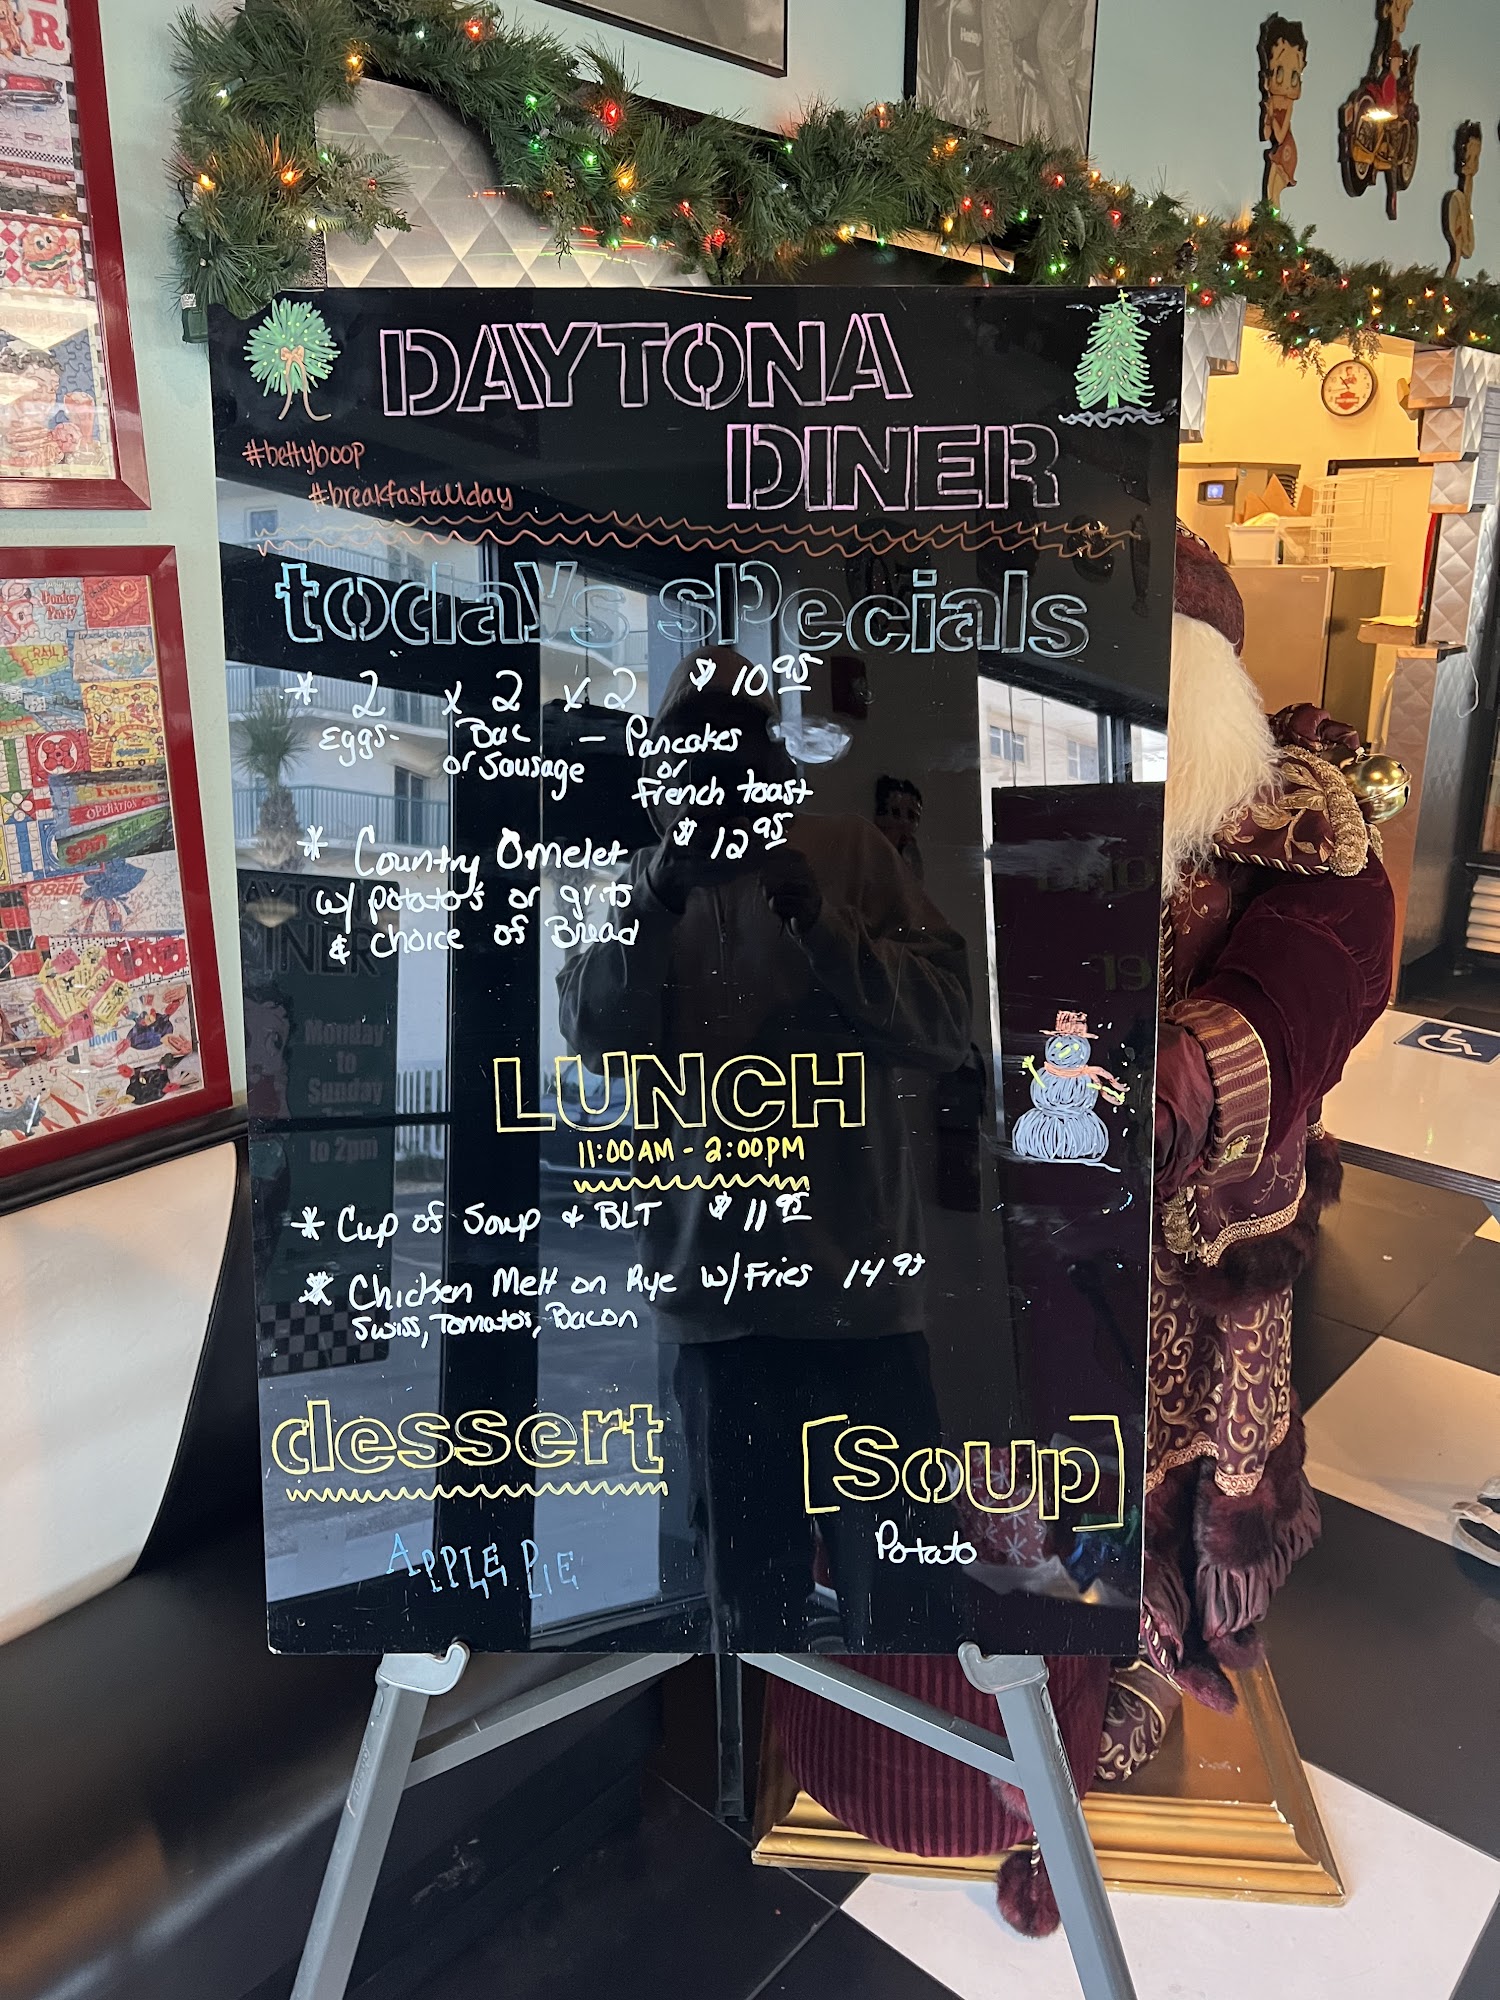 DAYTONA
DINER
#bettyboop
#breakfastallday
today's specials
* 2 x 2 x 2 $ 10 95
Eggs- Bac - Pancakes
or Sausage or
French toast
* Country Omelet $ 12 95
w/ potato's or grits
& choice of Bread
LUNCH
11:00AM - 2:00PM
* Cup of Soup & BLT $ 11 95
* Chicken Melt on Rye w/Fries 14 95
Swiss, Tomato's, Bacon
dessert
APPLE PIE
[Soup]
Potato
Monday
to
Sunday
to 2pm
OPERATION